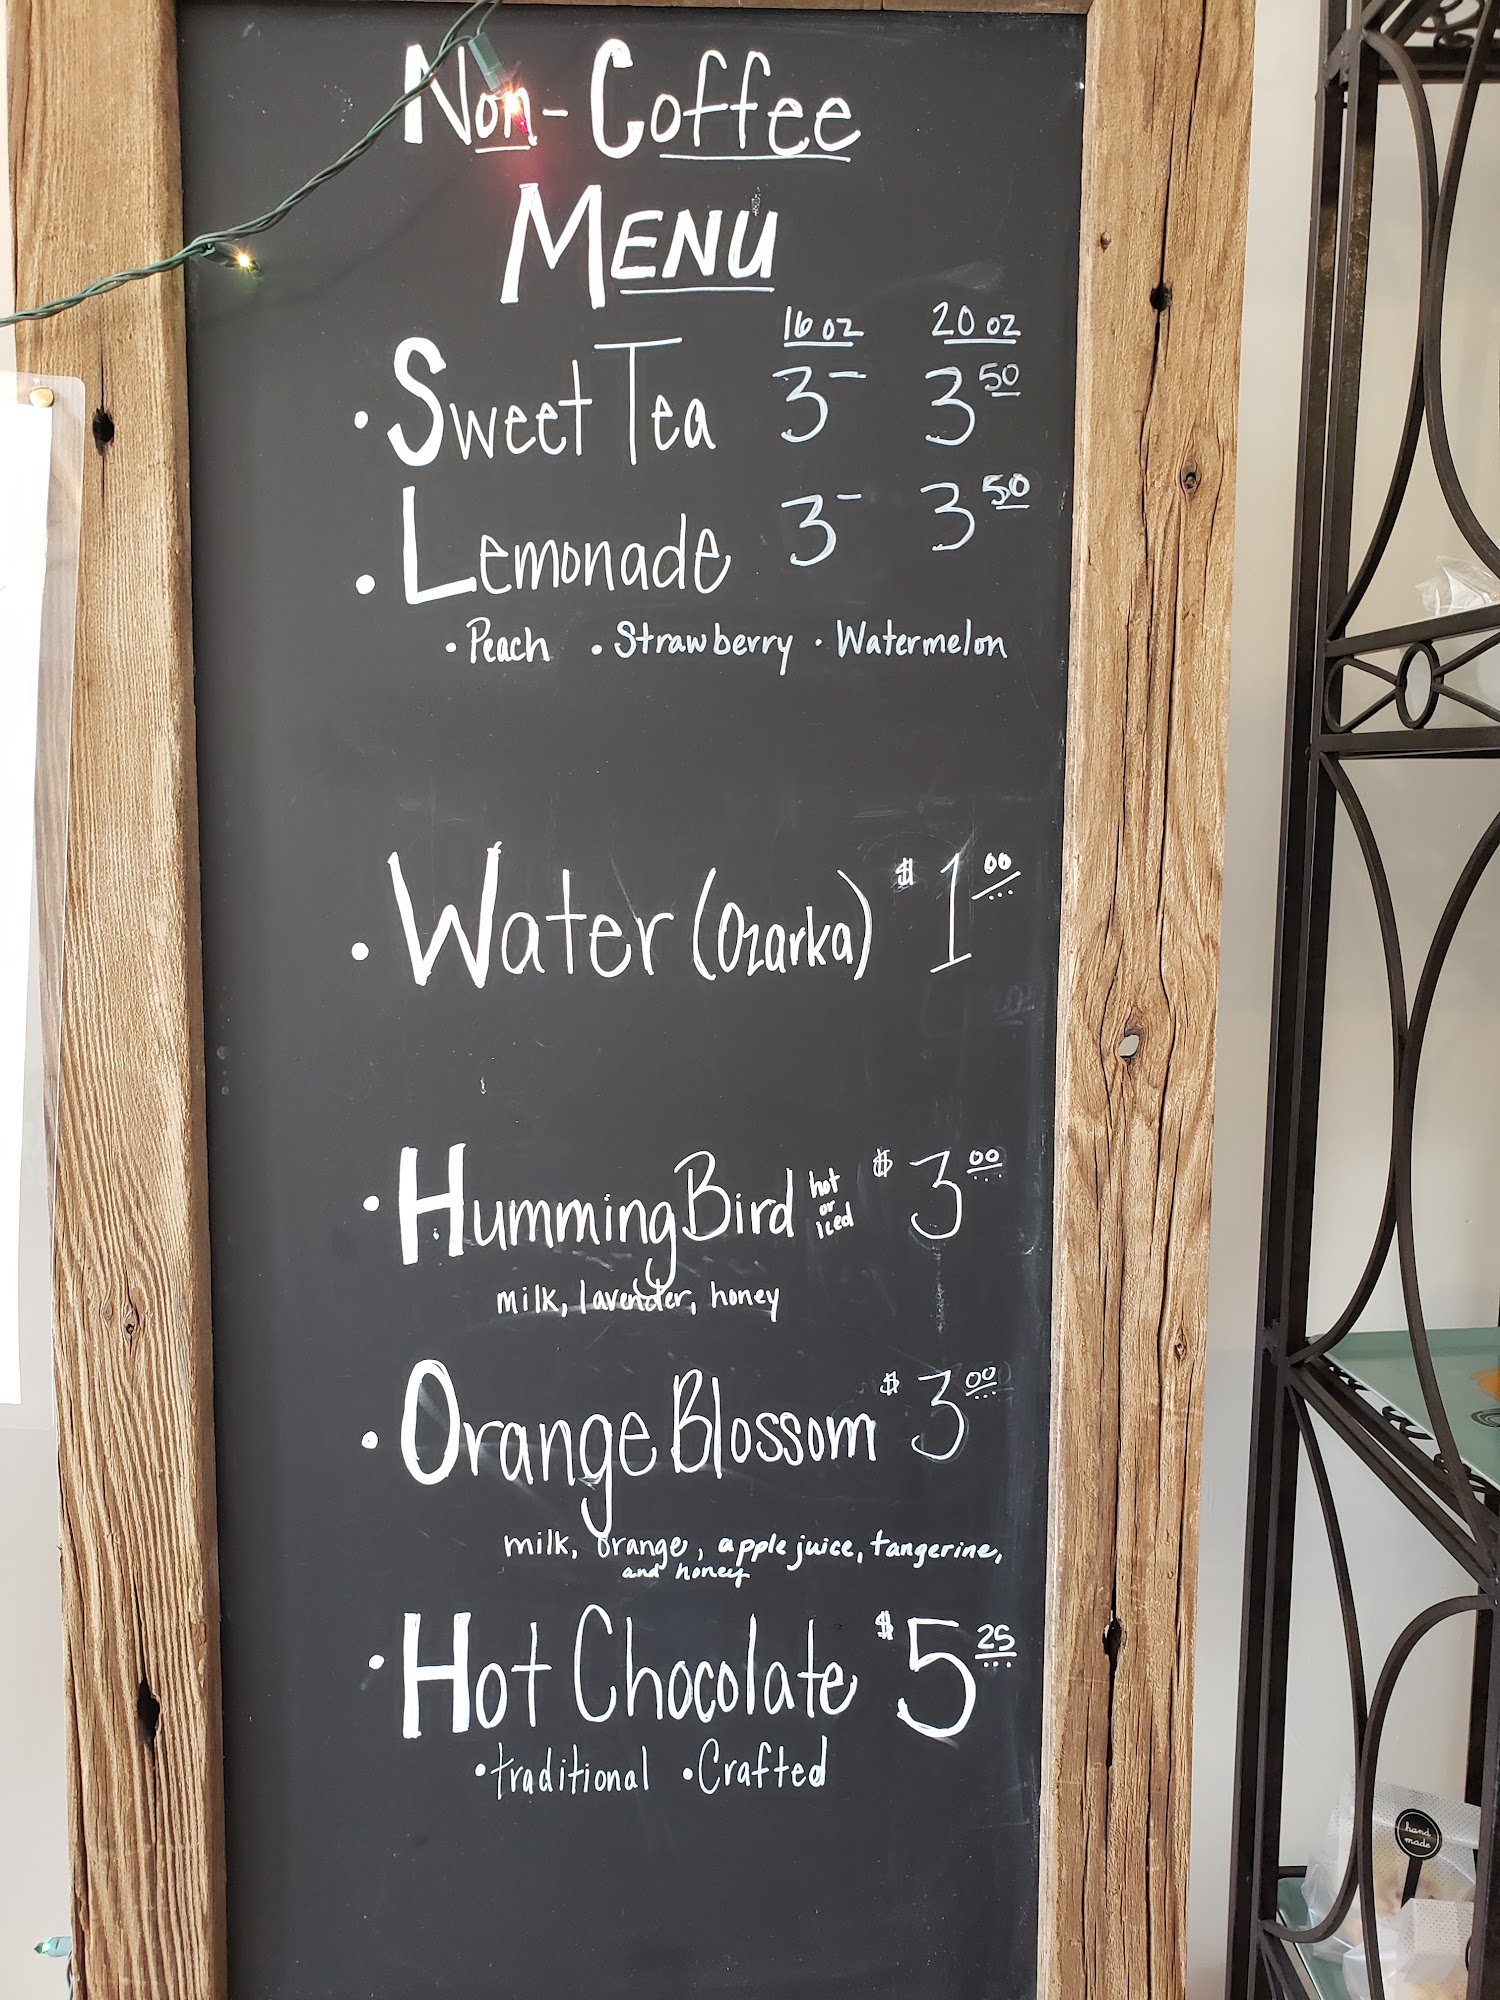 Non-Coffee
MENU
16 oz 20 oz
• Sweet Tea 3– 3 50
• Lemonade 3– 3 50
• Peach • Strawberry • Watermelon
• Water (Ozarka) $1 00
• HummingBird hot or iced $3 00
milk, lavender, honey
• Orange Blossom $3 00
milk, orange, apple juice, tangerine,
and honey
• Hot Chocolate $5 25
• traditional • Crafted
hand
made